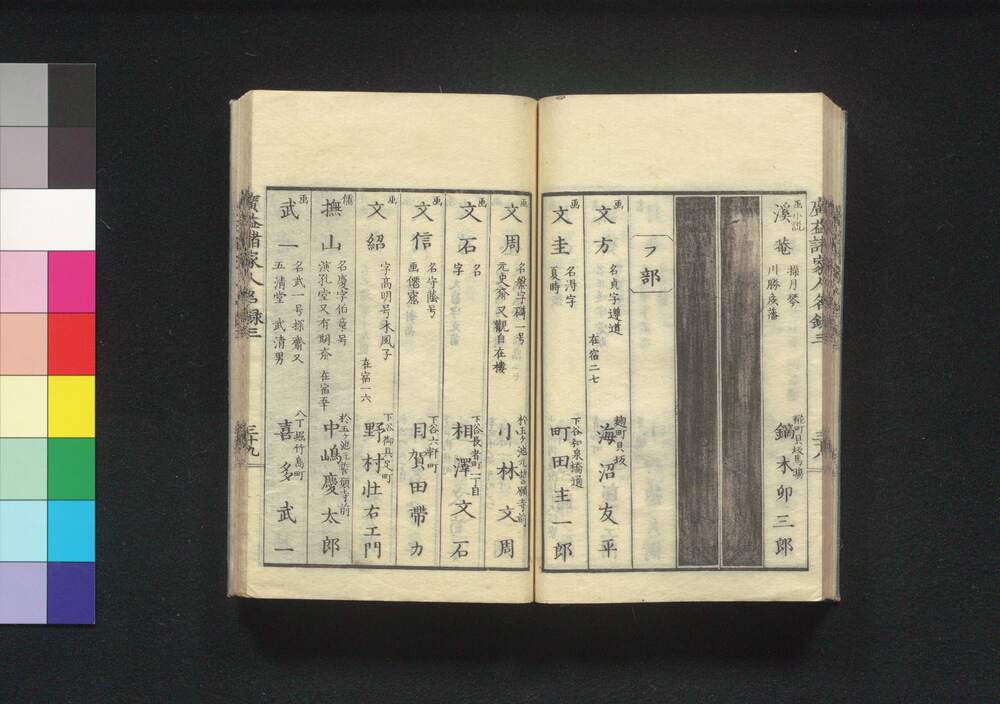 廣益諸家人名録三
三十八
画 小説
溪菴 操月琴
川勝庚藩
糀町貝坂馬場
鏑木卯三郎
フ部
画
文方 名貞字遵道
在宿二七
麹町貝坂
海沼友平
画
文圭 名淂字
夏時
下谷和泉橋通
町田圭一郎
画
文周 名
元史斎又觀自在樓
於玉ケ池元誓願寺前
小林文周
画
文石 名
字
下谷長者町二丁目
相澤文石
画
文信 名守蔭号
画僊窟
下谷六軒町
目賀田帶刀
画
文紹 字高明号木風子
在宿一六
下谷御具足町
野村壮右エ門
儒
撫山 名慶字伯竜号
演孔堂又有期斎
在宿五十
於玉ケ池元誓願寺前
中嶋慶太郎
画
武一 名武一号探齋又
五清堂 武清男
八丁堀竹島町
喜多武一
廣益諸家人名録三
三十九